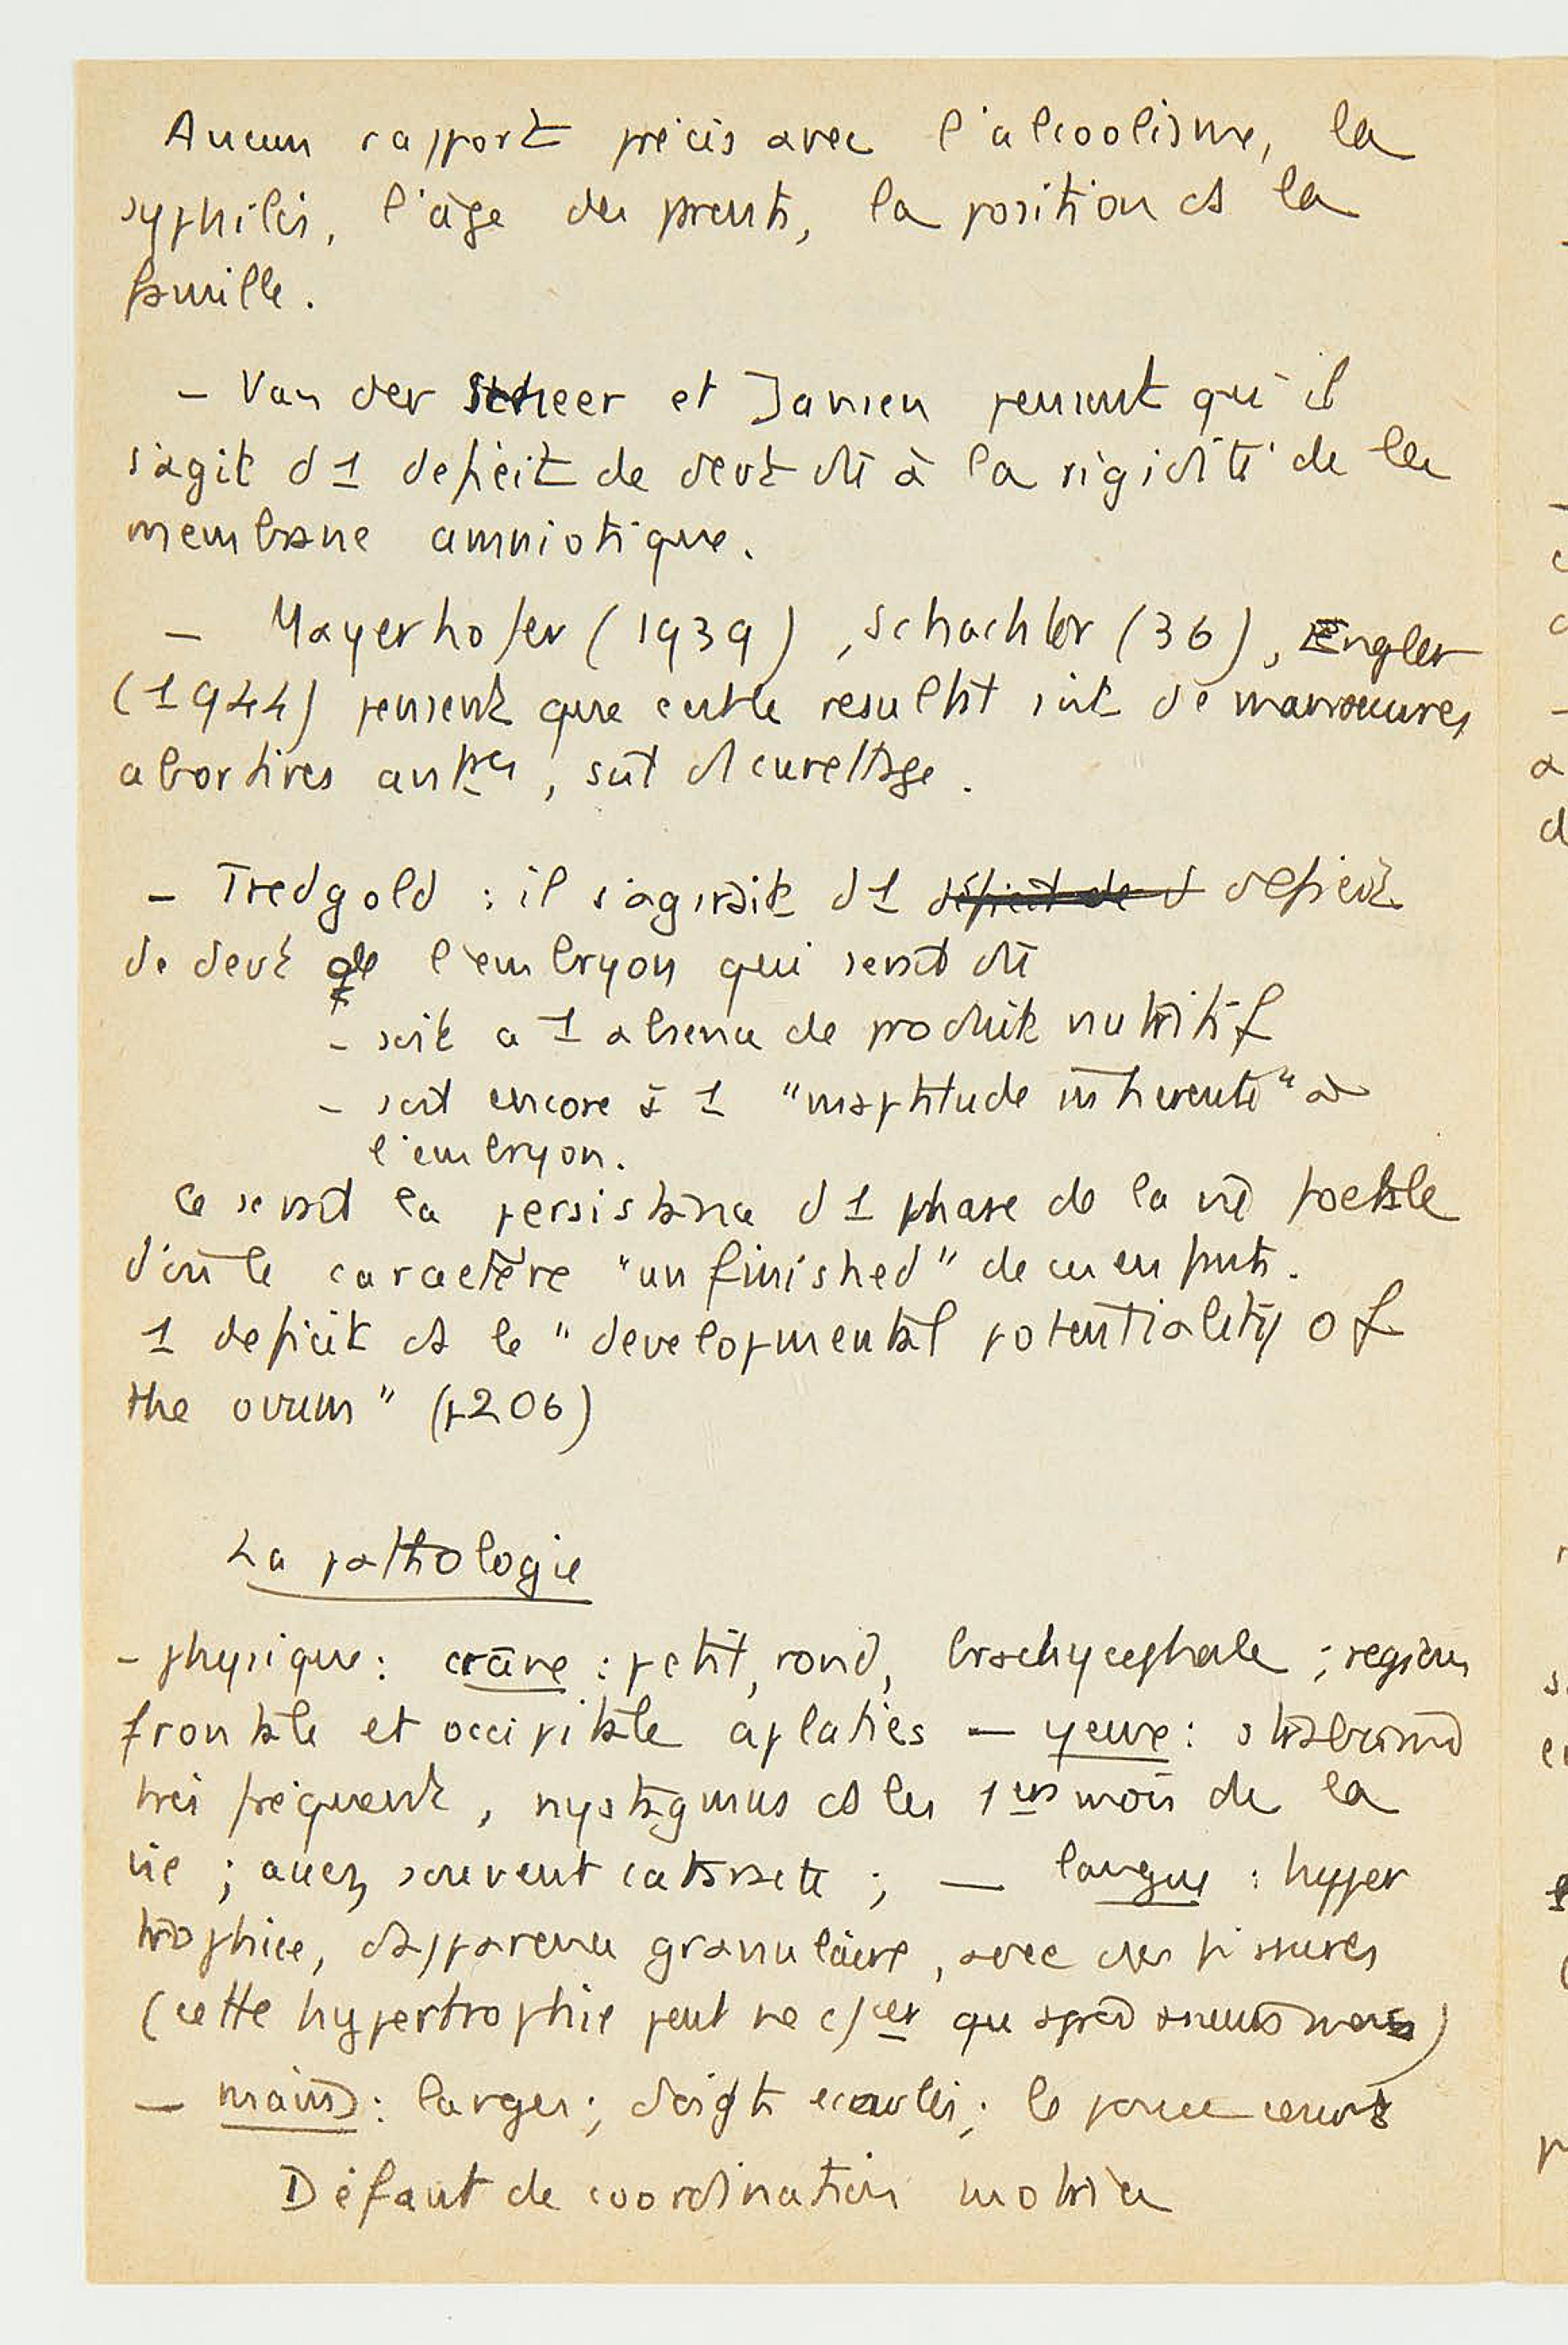 Aucun rapport précis avec l'alcoolisme, la
syphilis, l'âge des prents, la position ds la
famille.
– Van der Scheer et Jansen pensent qu'il
s'agit d1 deficit de devt dû à la rigidité de la
membrane amniotique.
– Mayerhofer (1939), Schachter (36), Engler
(1944) pensent que cela resultat soit de manœuvres
abortives antres, soit d curettage.
– Tredgold : il s'agirait d1 déficit de d deficit
de devt de l'embryon qui serait dû
– soit a 1 absence de produits nutritif
– soit encore à 1 "inaptitude inherente" à
l'embryon.
Ce serait la persistance d1 phase de la vie foetale
d'où le caractère "unfinished" de ces enfnts.
1 deficit ds le "developmental potentiality of
the ovum" (p206)
La pathologie
– physique : crâne : petit, rond, brachycephale ; regions
frontale et occipitale aplaties – yeux : strabisme
très fréquent, nystagmus ds les 1ers mois de la
vie ; assez souvent cataracte ; – langue : hyper
trophiée, d'apparence granulaire, avec des fissures
(cette hypertrophie peut ne c/cer qu après mois)
– mains : larges ; doigts ecartés ; le pouce court
Défaut de coordination motrice